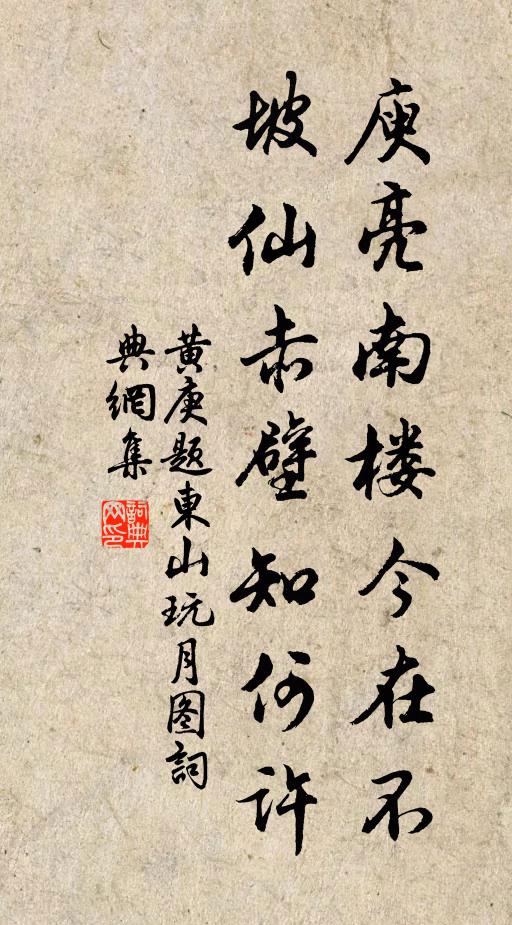 庾亮南楼今在不
坡仙赤壁知何许
黄庚题東山玩月图詞
典網集
詞典網印